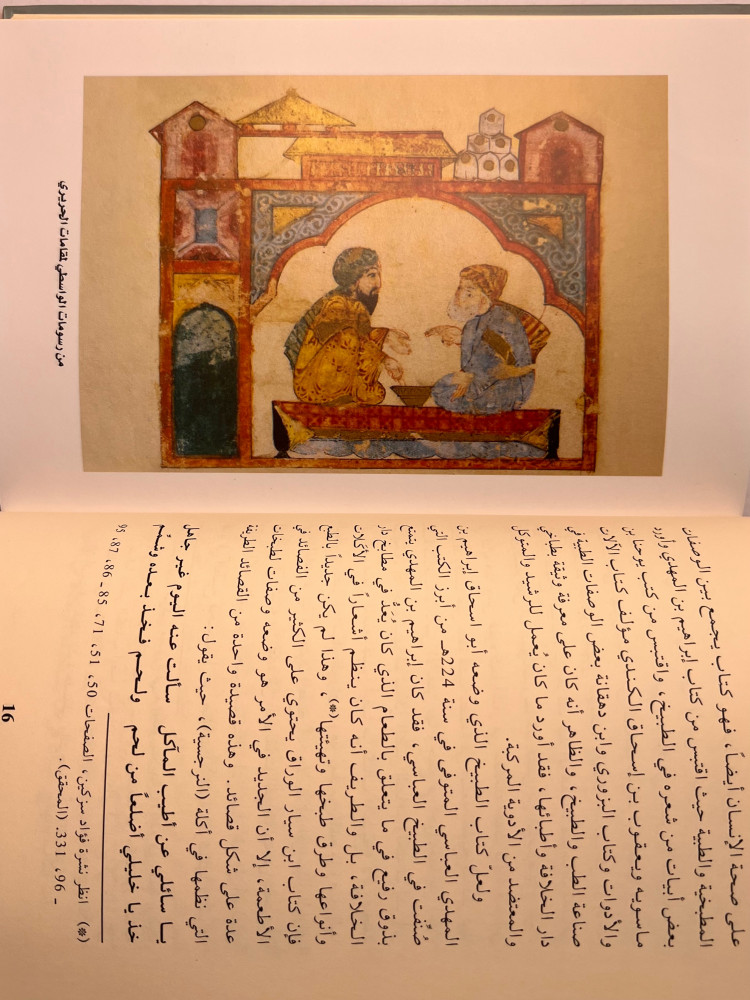 من رسومات الواسطي لمقامات الحريري
على صحة الإنسان أيضاً، فهو كتاب يجمع بين الوصفات
المطبخية والطبية حيث اقتبس من كتاب إبراهيم بن المهدي وأورد
بعض أبيات من شعره في الطبيخ، واقتبس من كتب يوحنا بن
ماسويه ويعقوب بن إسحاق الكندي مؤلف كتاب الآلات
والأدوات وكتاب البزوري وابن دهقانة بعض الوصفات الطبية في
صناعة الطب والطبيخ، والظاهر أنه كان على معرفة وثيقة بطباخي
دار الخلافة وأطبائها، فقد أورد ما كان يُعمل للرشيد والمتوكل
والمعتضد من الأدوية المركبة.
ولعلّ كتاب الطبيخ الذي وضعه أبو اسحاق إبراهيم بن
المهدي العباسي المتوفى في سنة 224هـ من أبرز الكتب التي
صُنِّفت في الطبيخ العباسي، فقد كان إبراهيم بن المهدي يتمتع
بذوق رفيع في ما يتعلق بالطعام الذي كان يُعَدُّ في مطابخ دار
الخلافة، بل والطريف أنه كان ينظم أشعاراً في الأكلات
وأنواعها وطرق طبخها وتهيئتها(*)، وهذا لم يكن جديداً بالطبع
فإن كتاب ابن سيار الوراق يحتوي على الكثير من القصائد في
الأطعمة، إلا أن الجديد في الأمر هو وضعه وصفات لطبخات
عدة على شكل قصائد. وهذه قصيدة واحدة من القصائد الطريفة
التي نظمها في أكلة (النرجسية)، حيث يقول:
يا سائلي عن أطيب المآكل سألت عنه اليوم غير جاهل
خذ يا خليلي أضلعاً من لحم ولحم فخذ بعده وشحم
(*) انظر نشرة فؤاد سزكين، الصفحات 50، 51، 71، 85 ـ 86، 87، 95
ـ 96، 331. (المحقق).
16